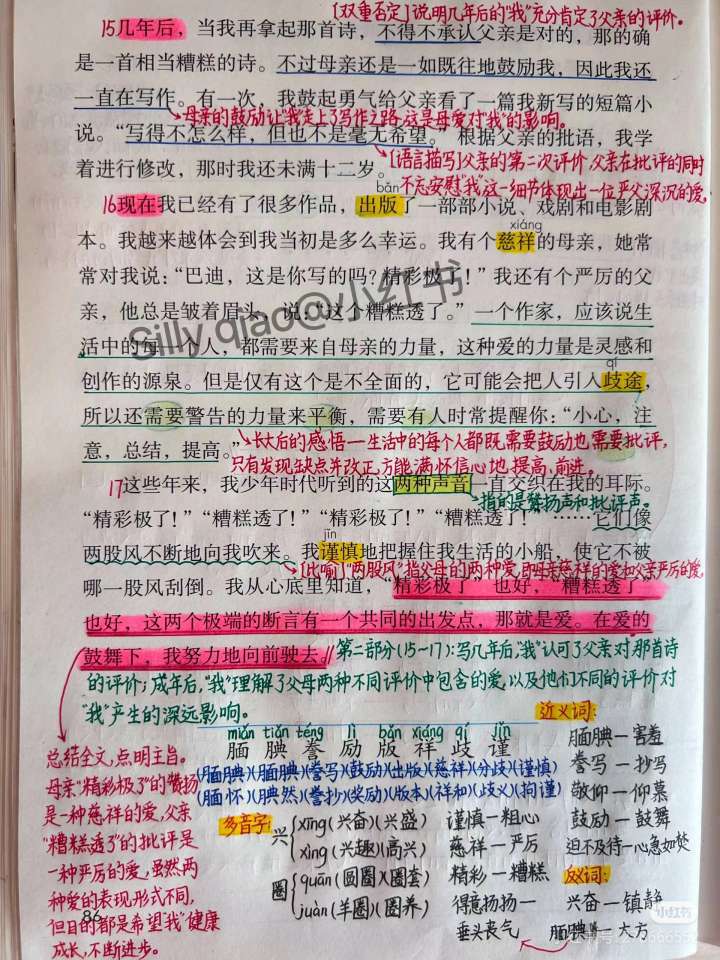 [双重否定]说明几年后的"我"充分肯定了父亲的评价。
15几年后，当我再拿起那首诗，不得不承认父亲是对的，那的确
是一首相当糟糕的诗。不过母亲还是一如既往地鼓励我，因此我还
一直在写作。有一次，我鼓起勇气给父亲看了一篇我新写的短篇小
母亲的鼓励让"我"走上了写作之路，这是母爱对"我"的影响。
说。“写得不怎么样，但也不是毫无希望。”根据父亲的批语，我学
着进行修改，那时我还未满十二岁。
[语言描写]父亲的第二次评价，父亲在批评的同时
不忘安慰"我"这一细节体现出一位严父深沉的爱。
bǎn
16现在我已经有了很多作品，出版了一部部小说、戏剧和电影剧
xiáng
本。我越来越体会到我当初是多么幸运。我有个慈祥的母亲，她常
常对我说：“巴迪，这是你写的吗？精彩极了！”我还有个严厉的父
亲，他总是皱着眉头，说：“这个糟糕透了。”一个作家，应该说生
活中的每一个人，都需要来自母亲的力量，这种爱的力量是灵感和
qí
创作的源泉。但是仅有这个是不全面的，它可能会把人引入歧途，
所以还需要警告的力量来平衡，需要有人时常提醒你：“小心，注
意，总结，提高。”
长大后的感悟—生活中的每个人都既需要鼓励也需要批评，
只有发现缺点并改正，方能满怀信心地提高、前进。
17这些年来，我少年时代听到的这两种声音一直交织在我的耳际。
指的是赞扬声和批评声。
“精彩极了！”“糟糕透了！”“精彩极了！”“糟糕透了！”……它们像
jǐn
两股风不断地向我吹来。我谨慎地把握住我生活的小船，使它不被
[比喻]"两股风"指父母的两种爱，即母亲慈祥的爱和父亲严厉的爱。
哪一股风刮倒。我从心底里知道，“精彩极了”也好，“糟糕透了”
也好，这两个极端的断言有一个共同的出发点，那就是爱。在爱的
鼓舞下，我努力地向前驶去。
第二部分(15—17)：写几年后，"我"认可了父亲对那首诗
的评价；成年后，"我"理解了父母两种不同评价中包含的爱，以及他们不同的评价对
"我"产生的深远影响。
总结全文，点明主旨。
母亲"精彩极了"的赞扬
是一种慈祥的爱，父亲
"糟糕透了"的批评是
一种严厉的爱，虽然两
种爱的表现形式不同，
但目的都是希望"我"健康
成长，不断进步。
miǎn tiǎn téng lì bǎn xiáng qí jǐn
腼 腆 誊 励 版 祥 歧 谨
(腼腆)(腼腆)(誊写)(鼓励)(出版)(慈祥)(分歧)(谨慎)
(腼怀)(腆然)(誊抄)(奖励)(版本)(祥和)(歧义)(拘谨)
多音字：
兴
xīng(兴奋)(兴盛)
xìng(兴趣)(高兴)
圈
quān(圆圈)(圈套)
juàn(羊圈)(圈养)
近义词：
腼腆—害羞
誊写—抄写
敬仰—仰慕
鼓励—鼓舞
迫不及待—心急如焚
反义词：
兴奋—镇静
腼腆—大方
谨慎—粗心
慈祥—严厉
精彩—糟糕
得意扬扬—
垂头丧气
86
Silly.qiao@小红书
小红书